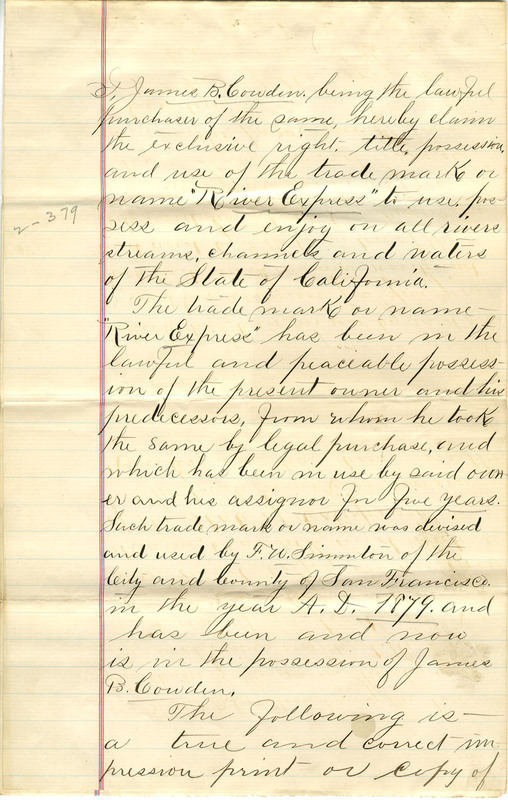 I, James B. Cowden. being the lawful
purchaser of the same, hereby claim
the exclusive right, title, possession,
and use of the trade mark or
name "River Express" to use, pos-
2-379
sess and enjoy on all rivers
streams, channels and waters
of the State of California.
The trade mark or name-
"River Express" has been in the
lawful and peaceable possess-
ion of the present owner and his
predecessors, from whom he took
the same by legal purchase, and
which has been in use by said own-
er and his assignor for five years.
Such trade mark or name was devised
and used by F. W. of the
City and County of San Francisco.
in the year A. D. 1879. and
has been and now
is in the possession of James
B. Cowden.
The following is-
a true and correct im-
pression print or copy of